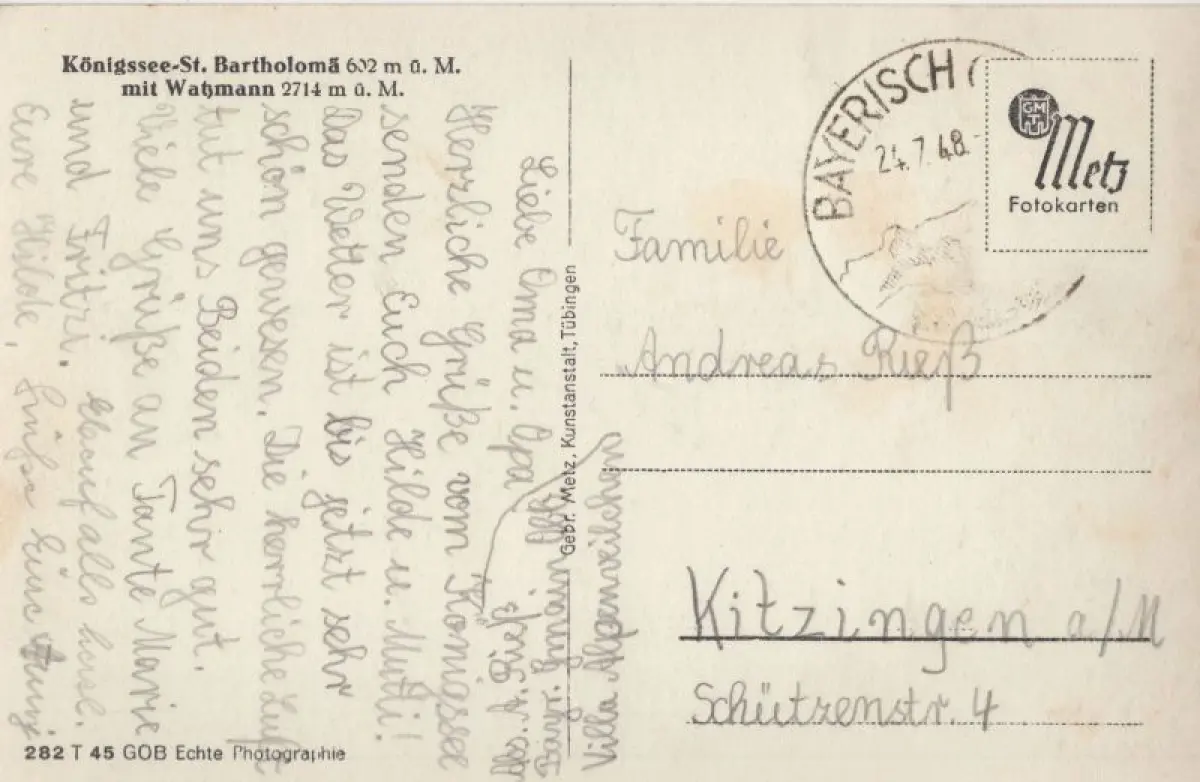 Königssee-St. Bartholomä 602 m ü. M.
mit Watzmann 2714 m ü. M.
Liebe Oma u. Opa
Herzliche Grüße vom Königssee
senden Euch Hilde u. Mutti!
Das Wetter ist bis jetzt sehr
schön gewesen. Die herrliche Luft
tut uns Beiden sehr gut.
Viele Grüße an Tante Marie
und Fritzi.
Eure Hilde,
Villa Alpenveilchen
Gebr. Metz, Kunstanstalt, Tübingen
BAYERISCH
24.7.48
GMT
Metz
Fotokarten
Familie
Andreas Rieß
Kitzingen a/M
Schützenstr. 4
282 T 45 GOB Echte Photographie